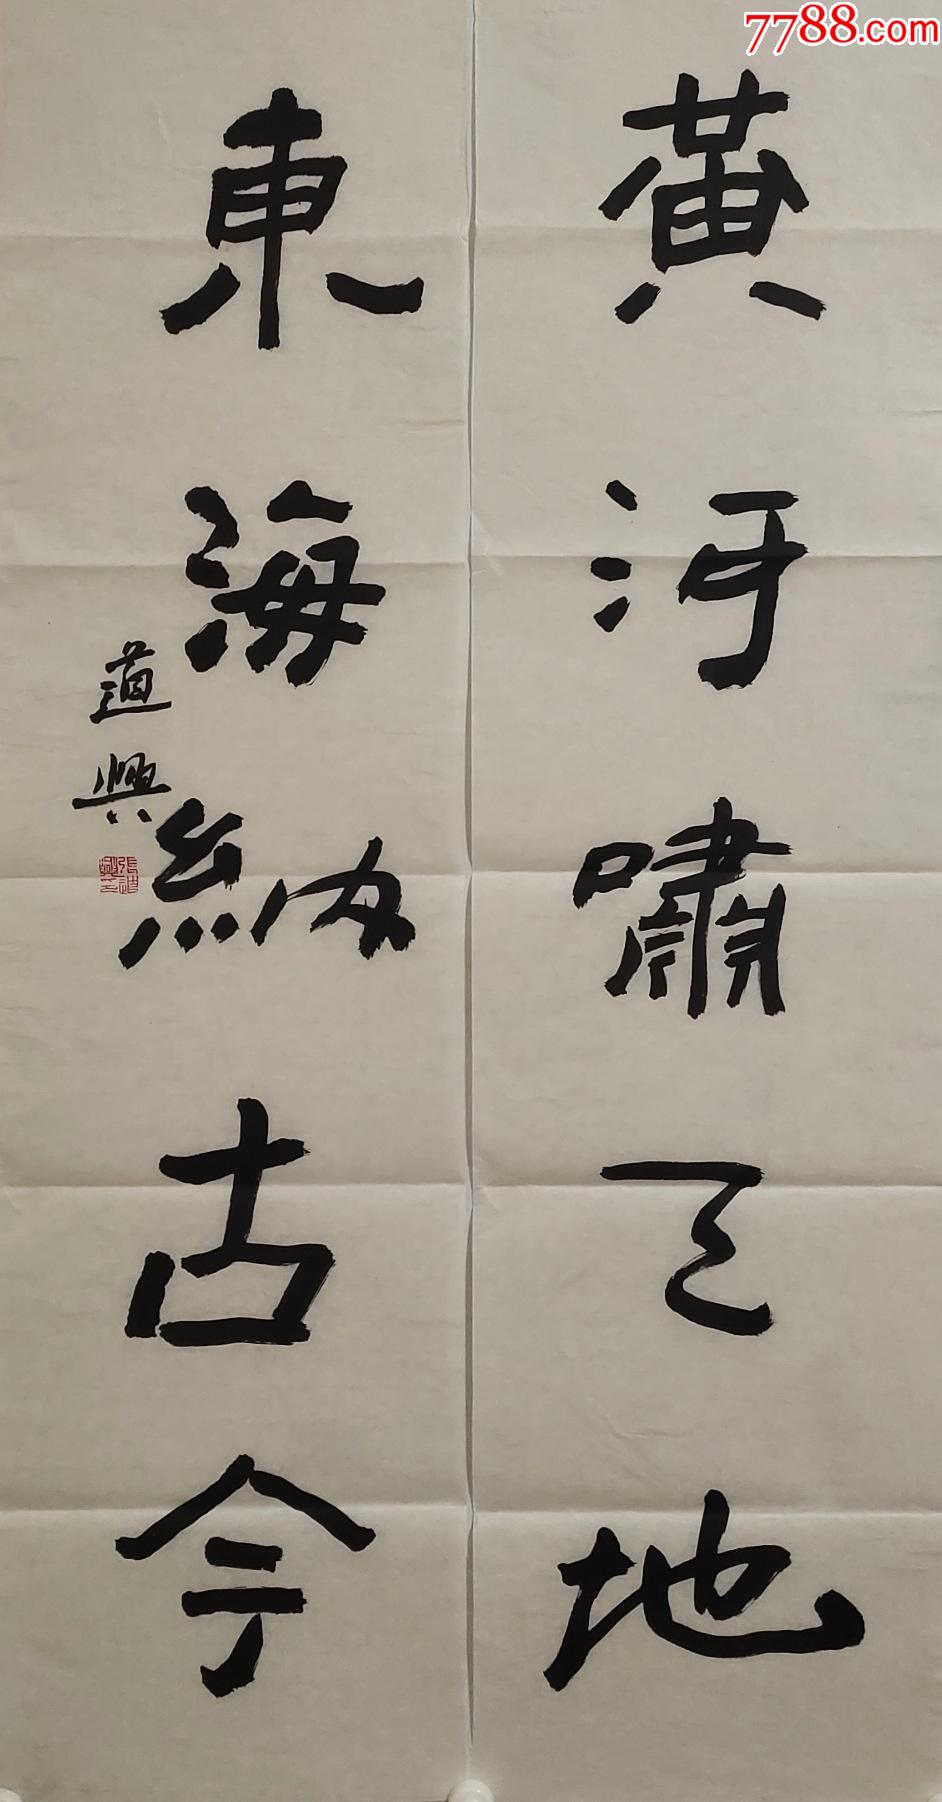 7788.com
黄河嘯天地
東海納古今
道興